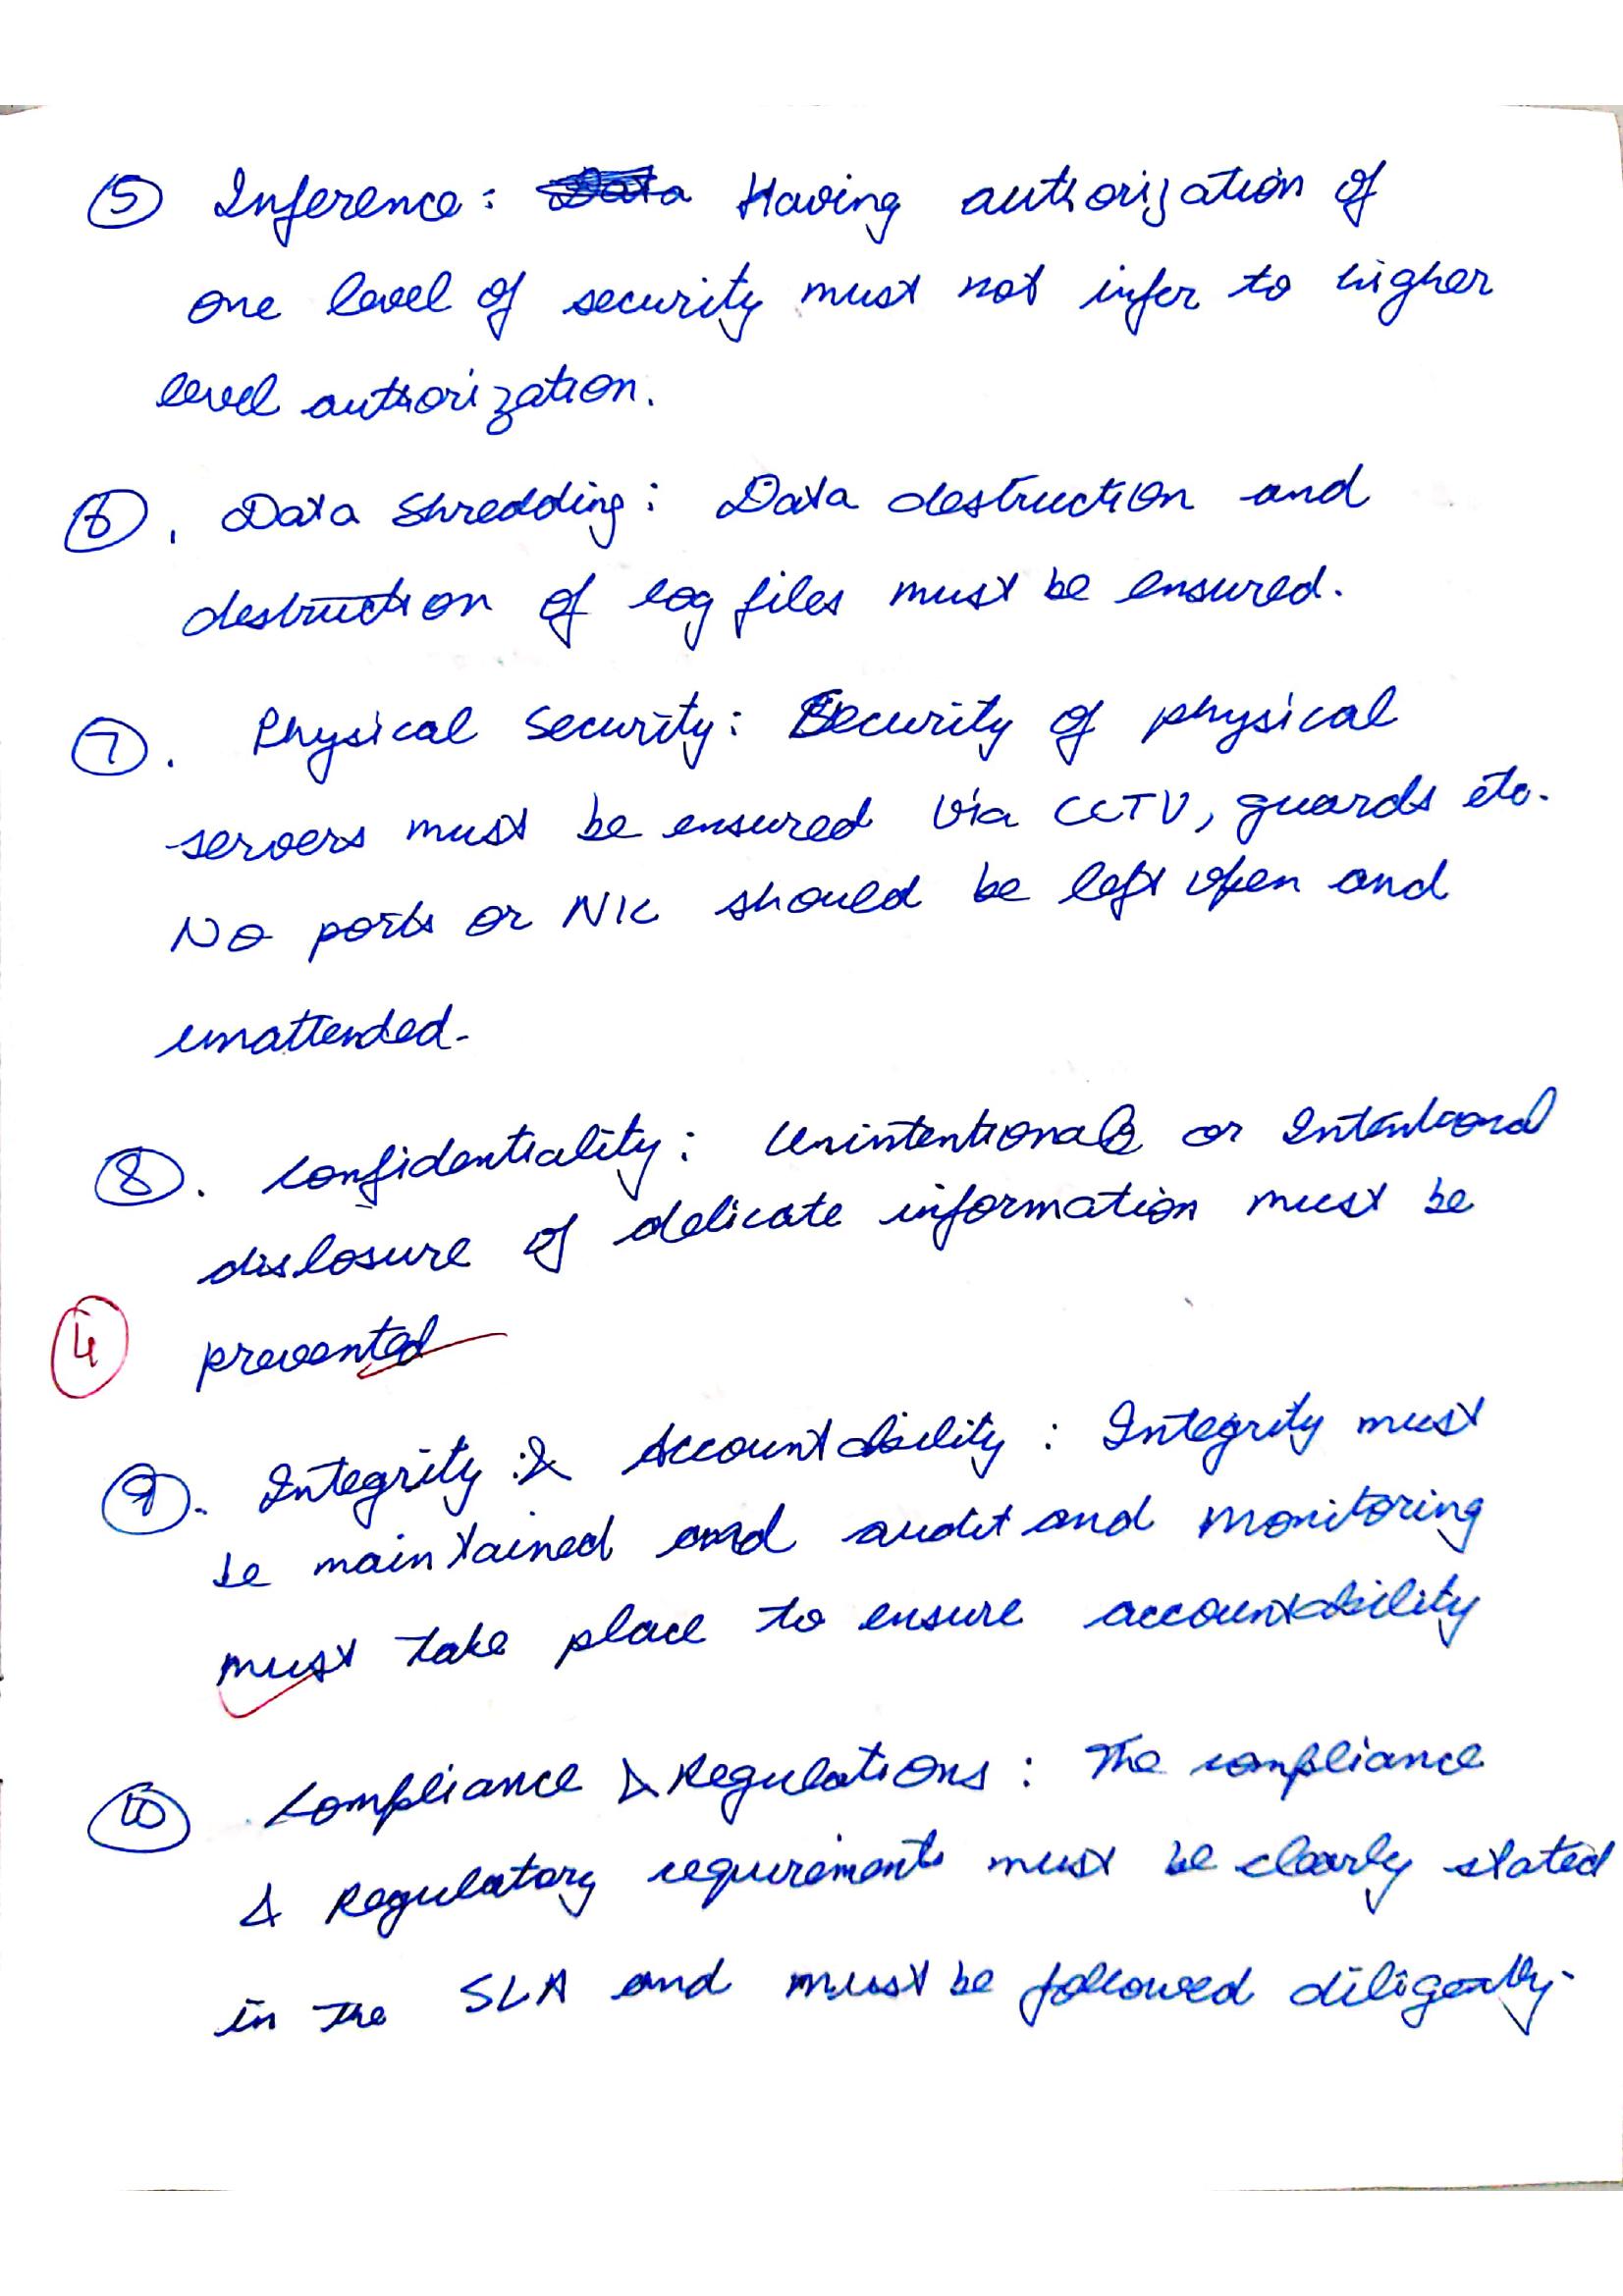 5 Inference: Data Having authorization of
one level of security must not infer to higher
level authorization.
6. Data Shredding: Data destruction and
destruction of log files must be ensured.
7. Physical Security: Security of physical
servers must be ensured via CCTV, guards etc.
No ports or NIC should be left open and
unattended.
8. Confidentiality: Unintentional or Intentional
disclosure of delicate information must be
4 prevented
9. Integrity & Accountability: Integrity must
be maintained and audit and monitoring
must take place to ensure accountability
10 Compliance & Regulations: The compliance
& Regulatory requirements must be clearly stated
in the SLA and must be followed diligently.